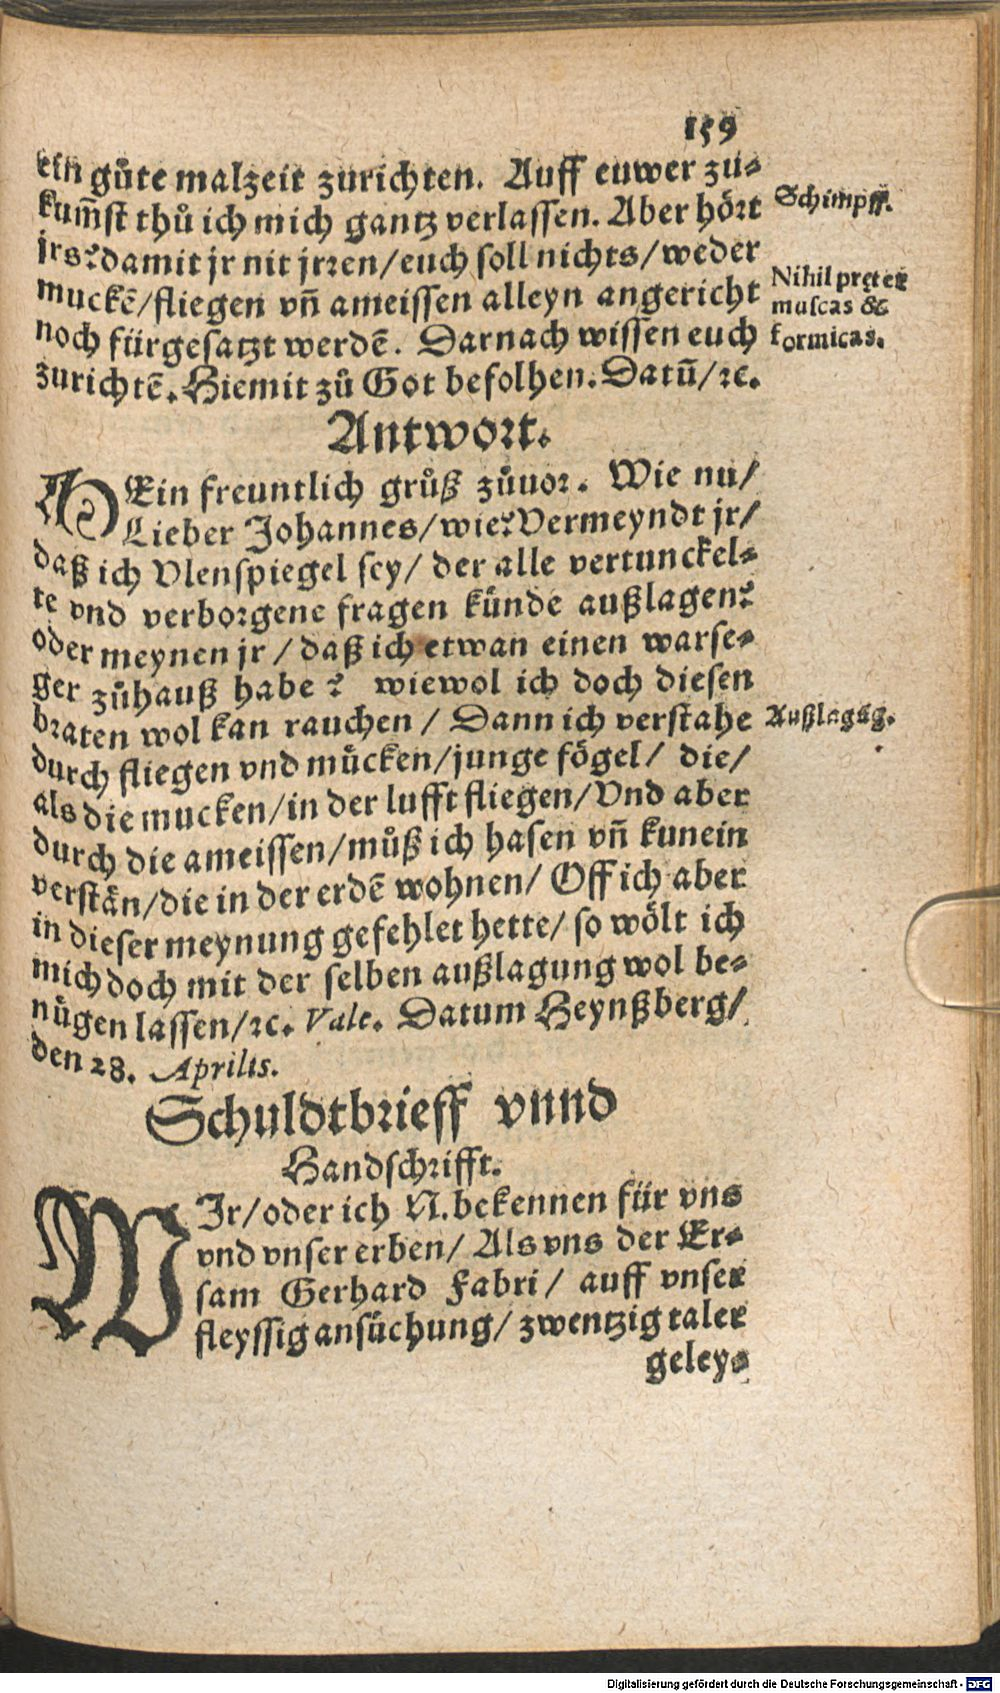 159
ein gůte malzeit zurichten. Auff euwer zu-
kum̃st thů ich mich gantz verlassen. Aber hört
Schimpff.
jrs? damit jr nit jrren/ euch soll nichts/ weder
muckē/ fliegen vn̄ ameissen alleyn angericht
Nihil pręter
muscas &
formicas.
noch fürgesatzt werdē. Darnach wissen euch
zurichtē. Hiemit zů Got befolhen. Datū/ ꝛc.
Antwort.
MEin freuntlich grůß zůuor. Wie nu/
Lieber Johannes/ wie? Vermeyndt jr/
daß ich Vlenspiegel sey/ der alle vertunckel-
te vnd verborgene fragen künde außlagen?
oder meynen jr/ daß ich etwan einen warse-
ger zůhauß habe? wiewol ich doch diesen
braten wol kan rauchen/ Dann ich verstahe
Außlagūg.
durch fliegen vnd mücken/ junge fögel/ die/
als die mucken/ in der lufft fliegen/ Vnd aber
durch die ameissen/ můß ich hasen vn̄ kunein
verstän/ die in der erdē wohnen/ Off ich aber
in dieser meynung gefehlet hette/ so wölt ich
mich doch mit der selben außlagung wol be-
nügen lassen/ ꝛc. Vale. Datum Heynßberg/
den 28. Aprilis.
Schuldtbrieff vnnd
Handschrifft.
WIr/ oder ich N. bekennen für vns
vnd vnser erben/ Als vns der Er-
sam Gerhard Fabri/ auff vnser
fleyssig ansüchung/ zwentzig taler
geley-
Digitalisierung gefördert durch die Deutsche Forschungsgemeinschaft - DFG